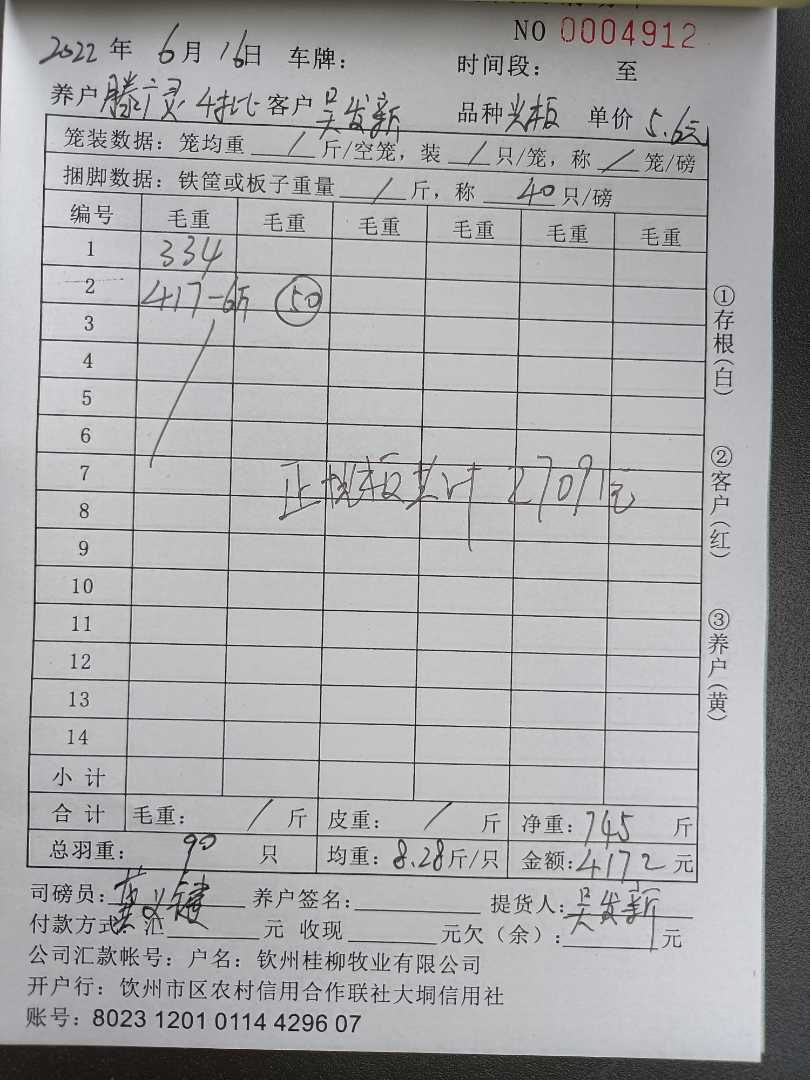 NO 0004912
2022 年 6 月 16 日 车牌： 时间段： 至
养户 滕广灵 4批 客户 吴发新 品种 单价 5.6元
笼装数据：笼均重 / 斤/空笼，装 / 只/笼，称 / 笼/磅
捆脚数据：铁筐或板子重量 / 斤，称 40 只/磅
编号 毛重 毛重 毛重 毛重 毛重 毛重
1 334
2 417-6斤 50
3
4
5
6
7
正 板共计 27091元
8
9
10
11
12
13
14
小计
合计 毛重： / 斤 皮重： / 斤 净重：745 斤
总羽重： 90 只 均重：8.28斤/只 金额：4172元
司磅员：黄义键 养户签名： 提货人：吴发新
付款方式：汇 元 收现 元欠（余）： 元
公司汇款帐号：户名：钦州桂柳牧业有限公司
开户行：饮州市区农村信用合作联社大垌信用社
账号：8023 1201 0114 4296 07
①存根（白）
②客户（红）
③养户（黄）